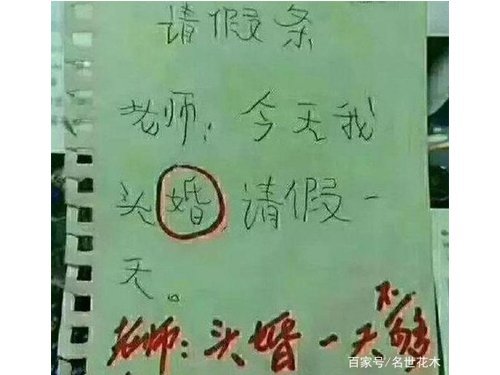 请假条
老师：今天我
头婚，请假一
天。
老师：头婚一天不够
百家号/名世花木